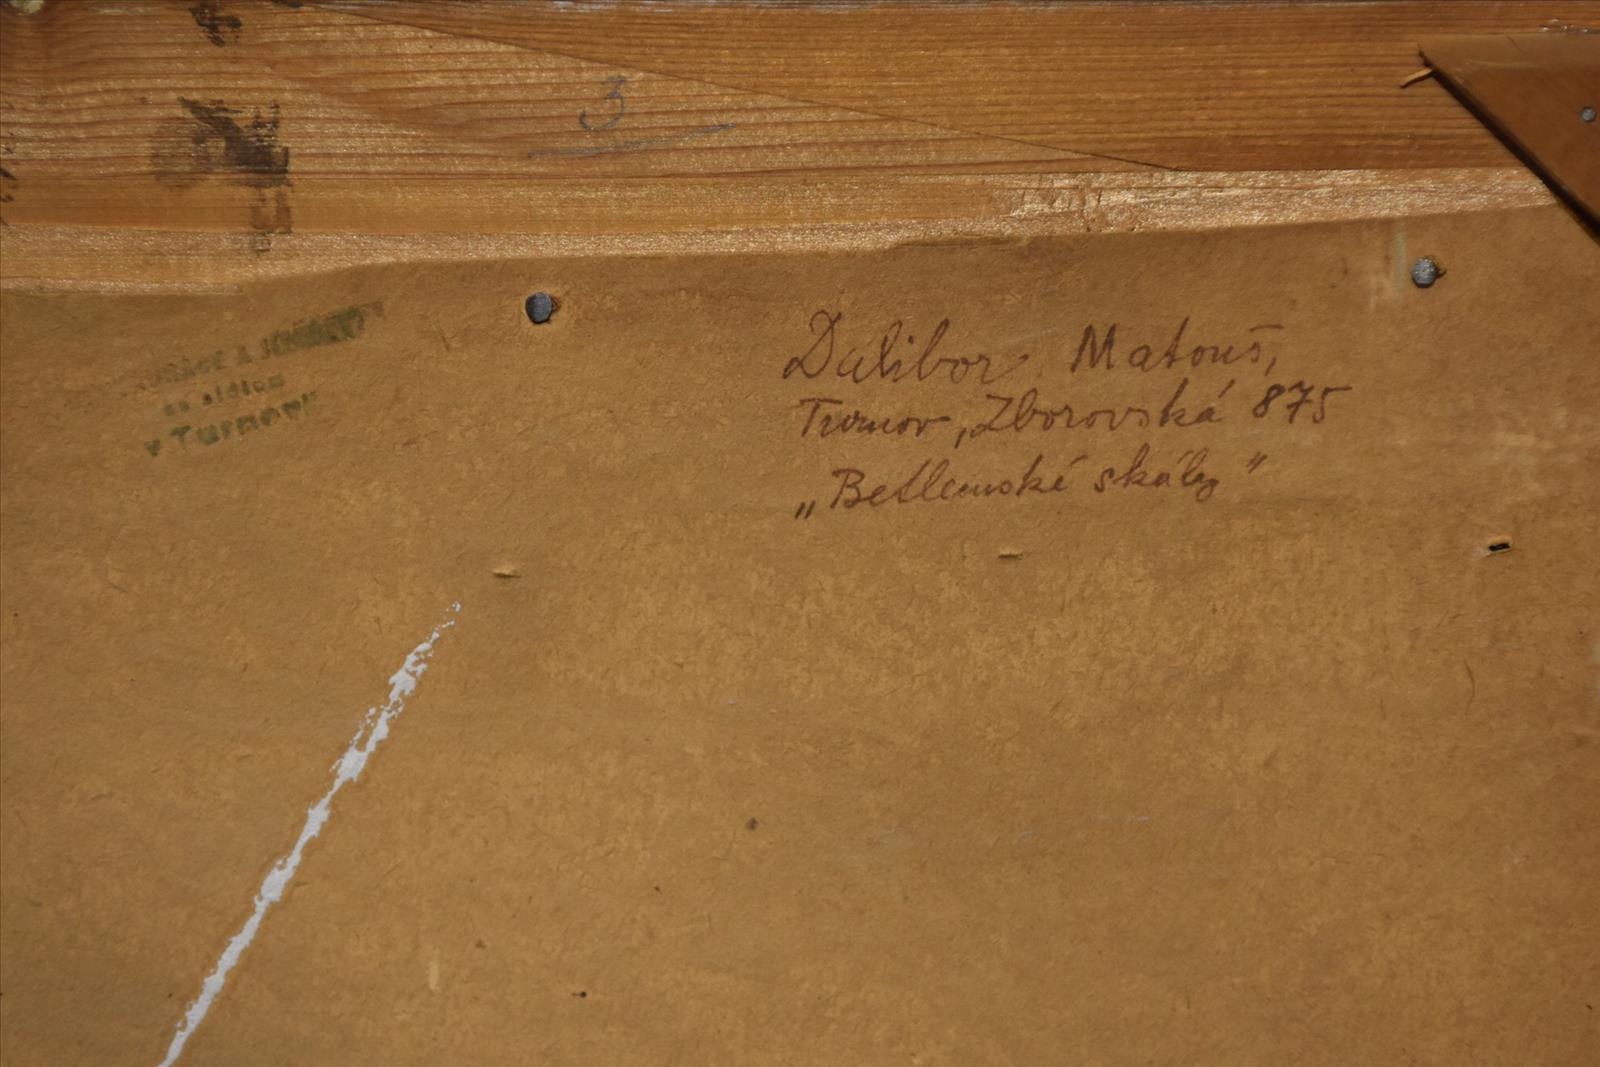 3
se sídlem
v Turnově
Dalibor Matouš,
Turnov, Zborovská 875
„Betlemské skály"